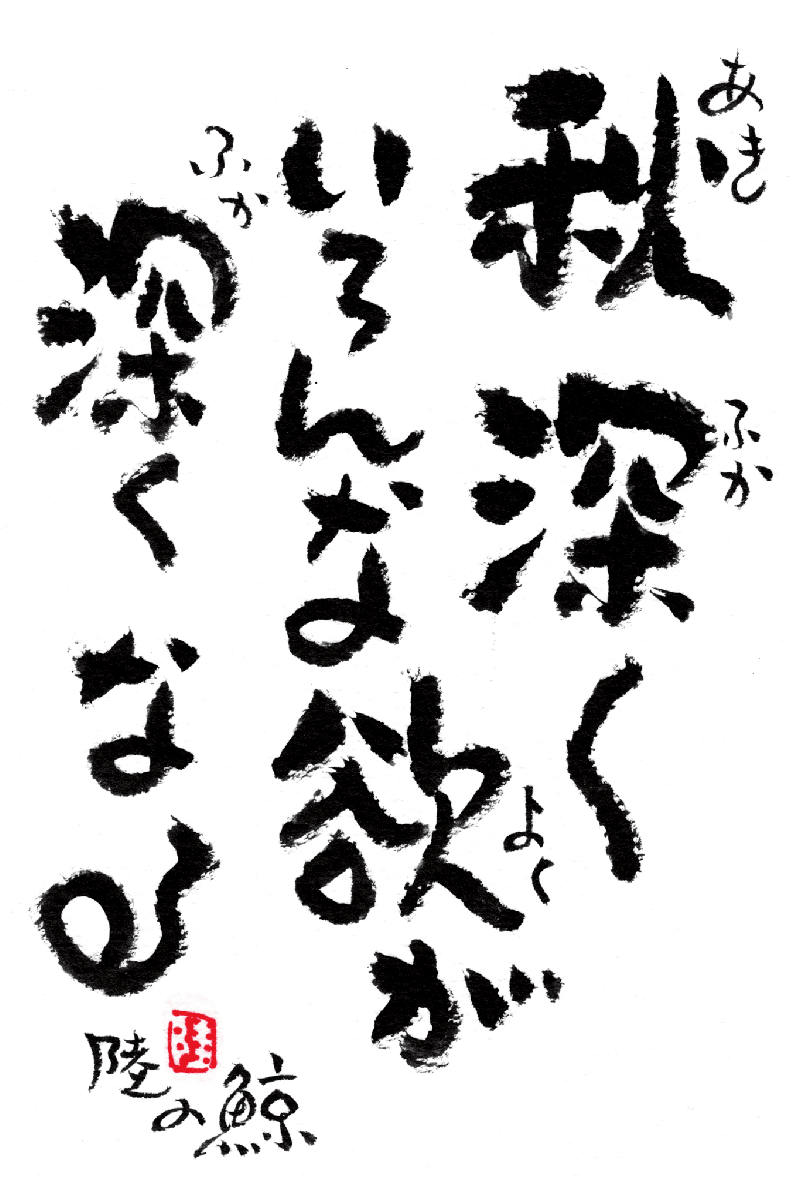 秋深く
あき
ふか
いろんな欲が
よく
深くなる
ふか
陸の鯨
陸